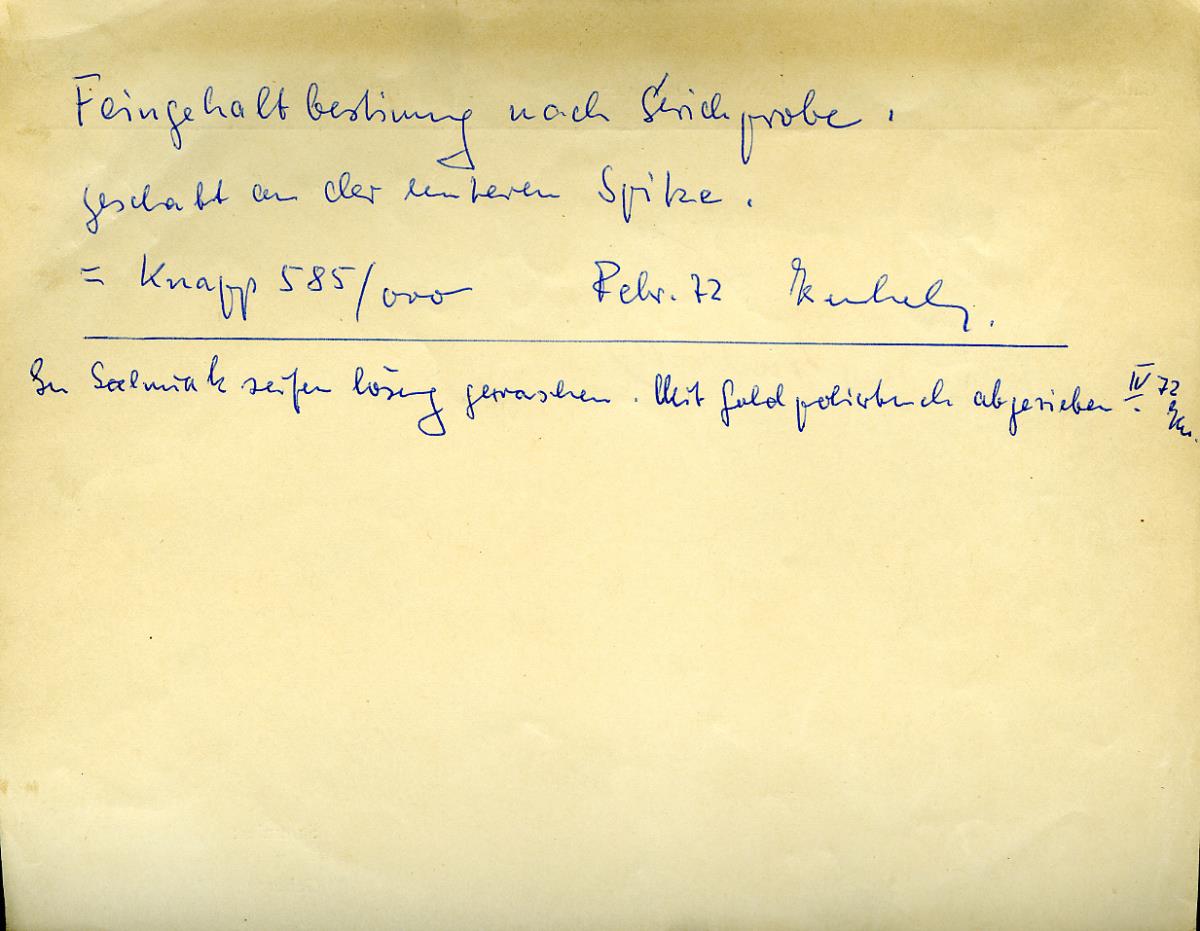 Feingehaltbestimung nach Strichprobe.
geschabt an der unteren Spitze.
= Knapp 585/000 Febr. 72
In Salmiak seifen lösung gewaschen. Mit Goldpoliertuch abgerieben IV. 72